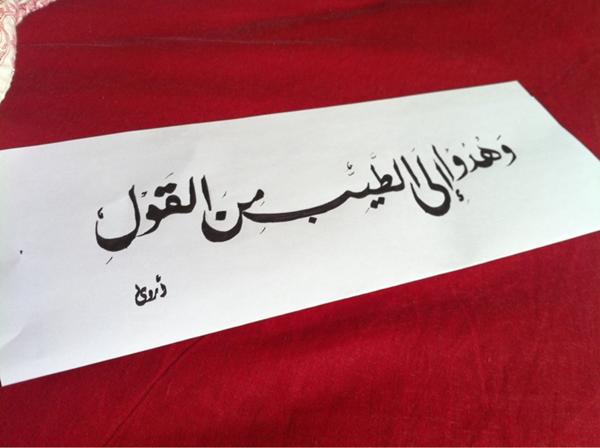 وَهُدُوا إِلَى الطَّيِّبِ مِنَ القَوْلِ
أروى